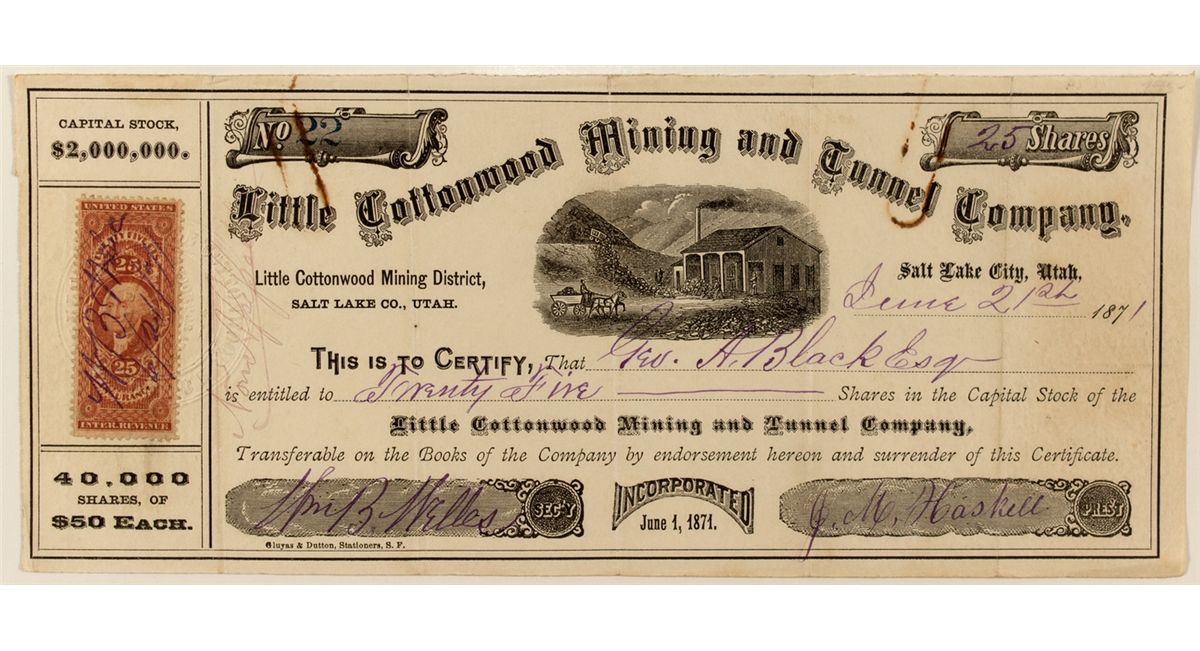 CAPITAL STOCK,
$2,000,000.
UNITED STATES
25
25
INSURANCE
INTER. REVENUE
40,000
SHARES, OF
$50 EACH.
No 22
25 Shares
Little Cottonwood Mining and Tunnel Company,
Little Cottonwood Mining District,
SALT LAKE CO., UTAH.
Salt Lake City, Utah,
June 21th 1871
THIS IS TO CERTIFY, That Geo. A. Black Esq
is entitled to Twenty Five Shares in the Capital Stock of the
Little Cottonwood Mining and Tunnel Company,
Transferable on the Books of the Company by endorsement hereon and surrender of this Certificate.
Wm. B. Welles SEC'Y
INCORPORATED
June 1, 1871.
J. M. Haskell PREST
Gluyas & Dutton, Stationers, S. F.